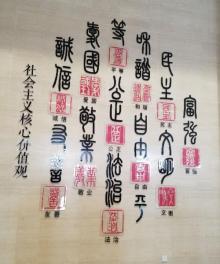 富強
富强
民主文明
民主
文明
和諧自由平
和谐
自由
等公正法治
平等
公正
法治
愛國敬業
爱国
敬业
誠信友善
诚信
友善
社会主义核心价值观